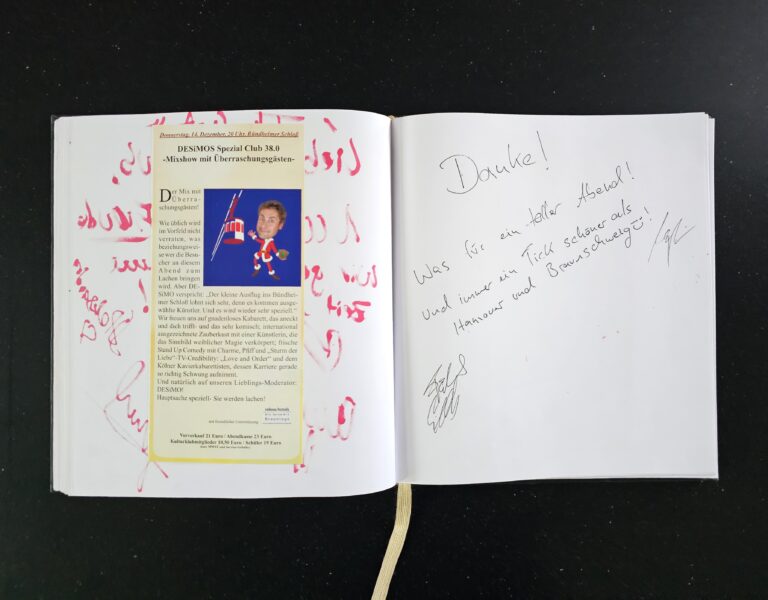 Donnerstag, 14. Dezember, 20 Uhr, Bündheimer Schloß
DESiMOS Spezial Club 38.0
-Mixshow mit Überraschungsgästen-
Der Mix mit
Überra-
schungsgästen!
Wie üblich wird
im Vorfeld nicht
verraten, was
beziehungswei-
se wer die Besu-
cher an diesem
Abend zum
Lachen bringen
wird. Aber DE-
SiMO verspricht: „Der kleine Ausflug ins Bündhei-
mer Schloß lohnt sich sehr, denn es kommen ausge-
wählte Künstler. Und es wird wieder sehr speziell.“
Wir freuen uns auf gnadenloses Kabarett, das aneckt
und dich trifft- und das sehr komisch; international
ausgezeichnete Zauberkunst mit einer Künstlerin, die
das Sinnbild weiblicher Magie verkörpert; frische
Stand Up Comedy mit Charme, Pfiff und „Sturm der
Liebe“-TV-Credibility: „Love and Order“ und dem
Kölner Kavierkabarettisten, dessen Karriere gerade
so richtig Schwung aufnimmt.
Und natürlich auf unseren Lieblings-Moderator:
DESiMO!
Hauptsache speziell- Sie werden lachen!
mit freundlicher Unterstützung
Vorverkauf 21 Euro / Abendkasse 23 Euro
Kulturclubmitglieder 18,50 Euro / Schüler 19 Euro
Danke!
Was für ein toller Abend!
Und immer ein Tick schöner als
Hannover und Braunschweig!